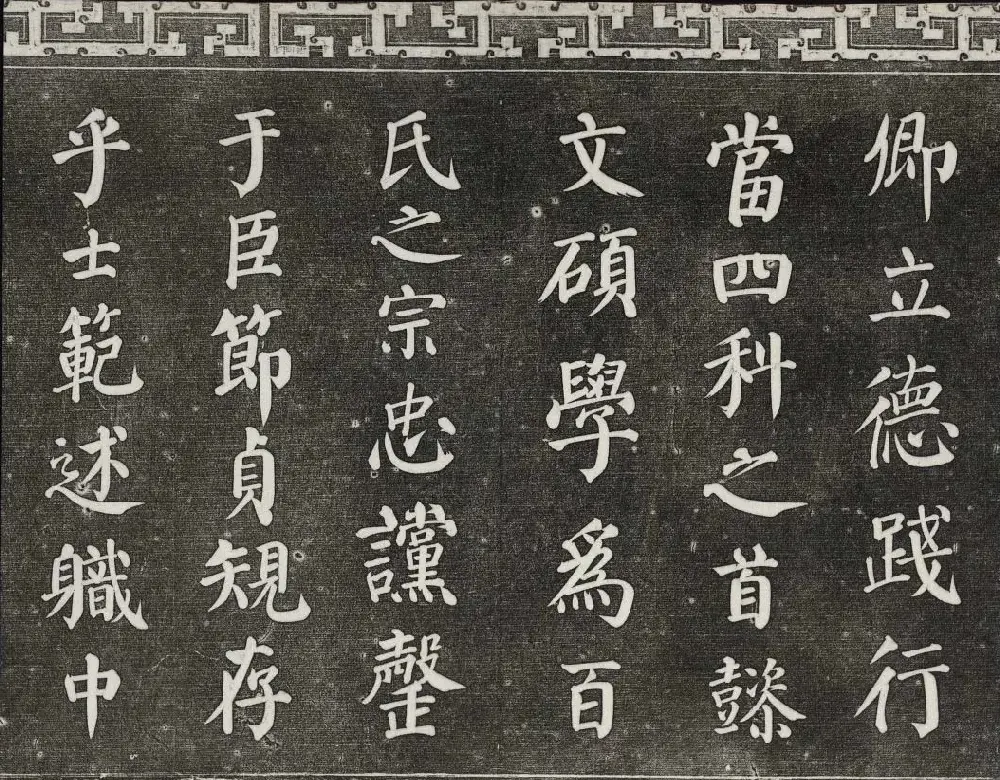 卿立德踐行
當四科之首懿
文碩學爲百
氏之宗忠讜罄
于臣節貞䂓存
乎士範述軄中